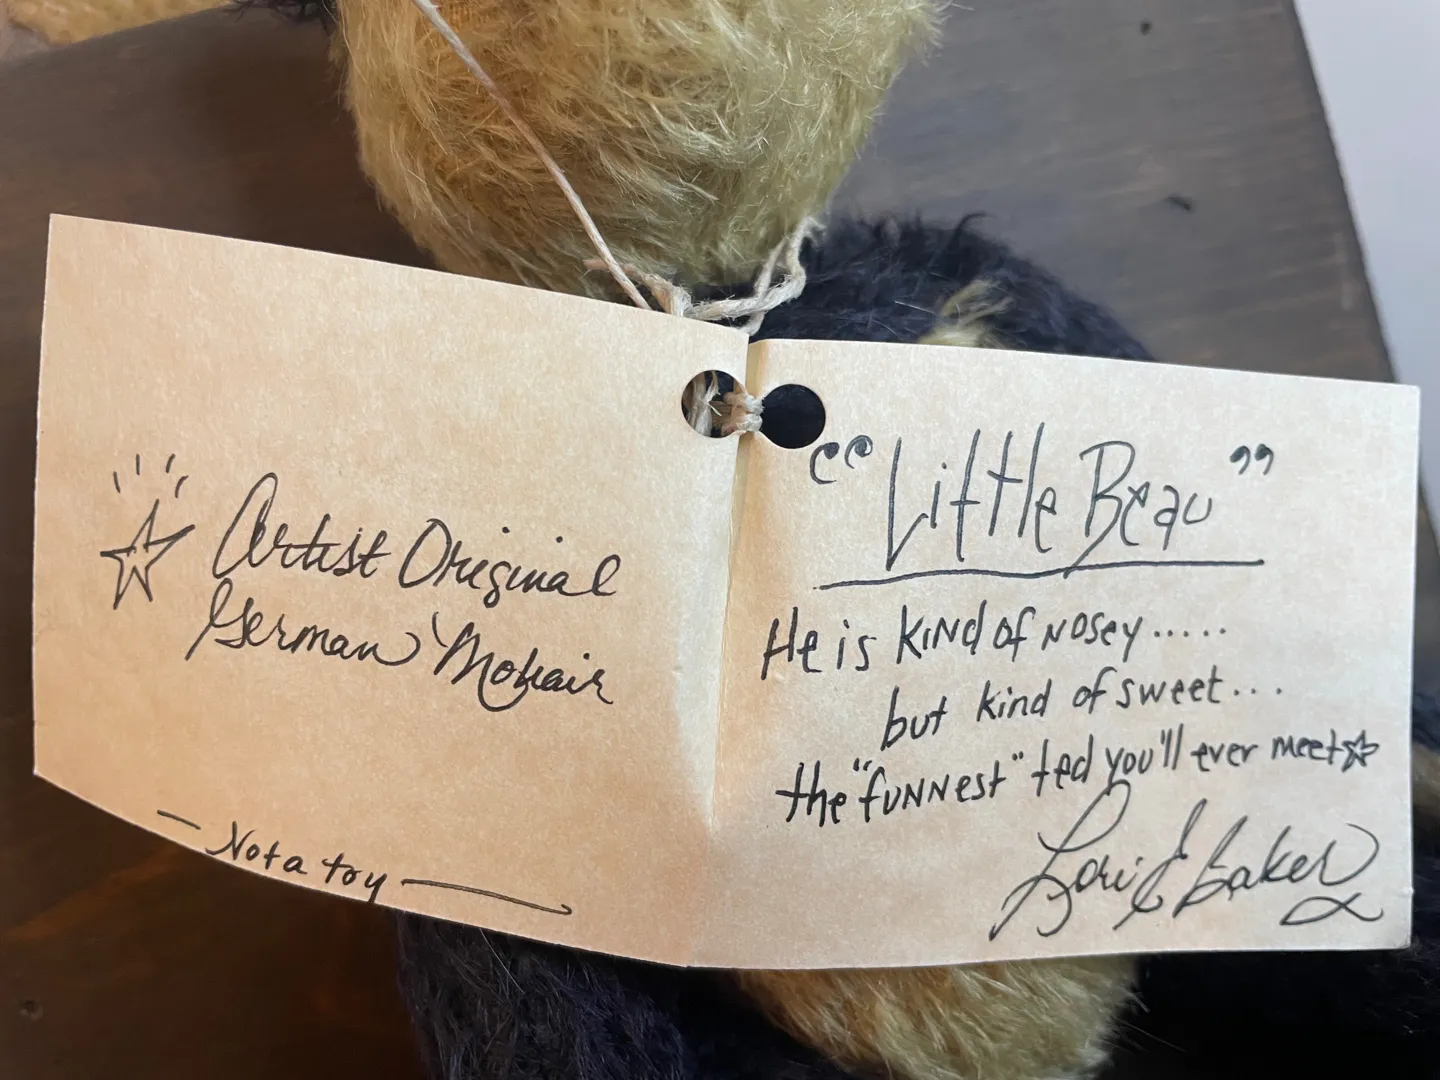 Artist Original
German Mohair
— Not a toy —
"Little Beau"
He is kind of nosey.....
but kind of sweet...
the "funnest" ted you'll ever meet
Lori E Baker